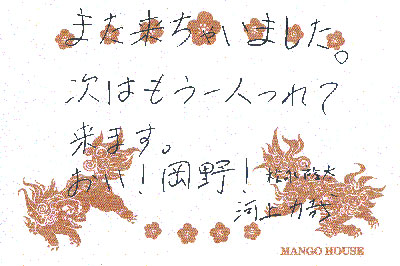 また来ちゃいました。
次はもう一人つれて
来ます。
おい！岡野！
MANGO HOUSE